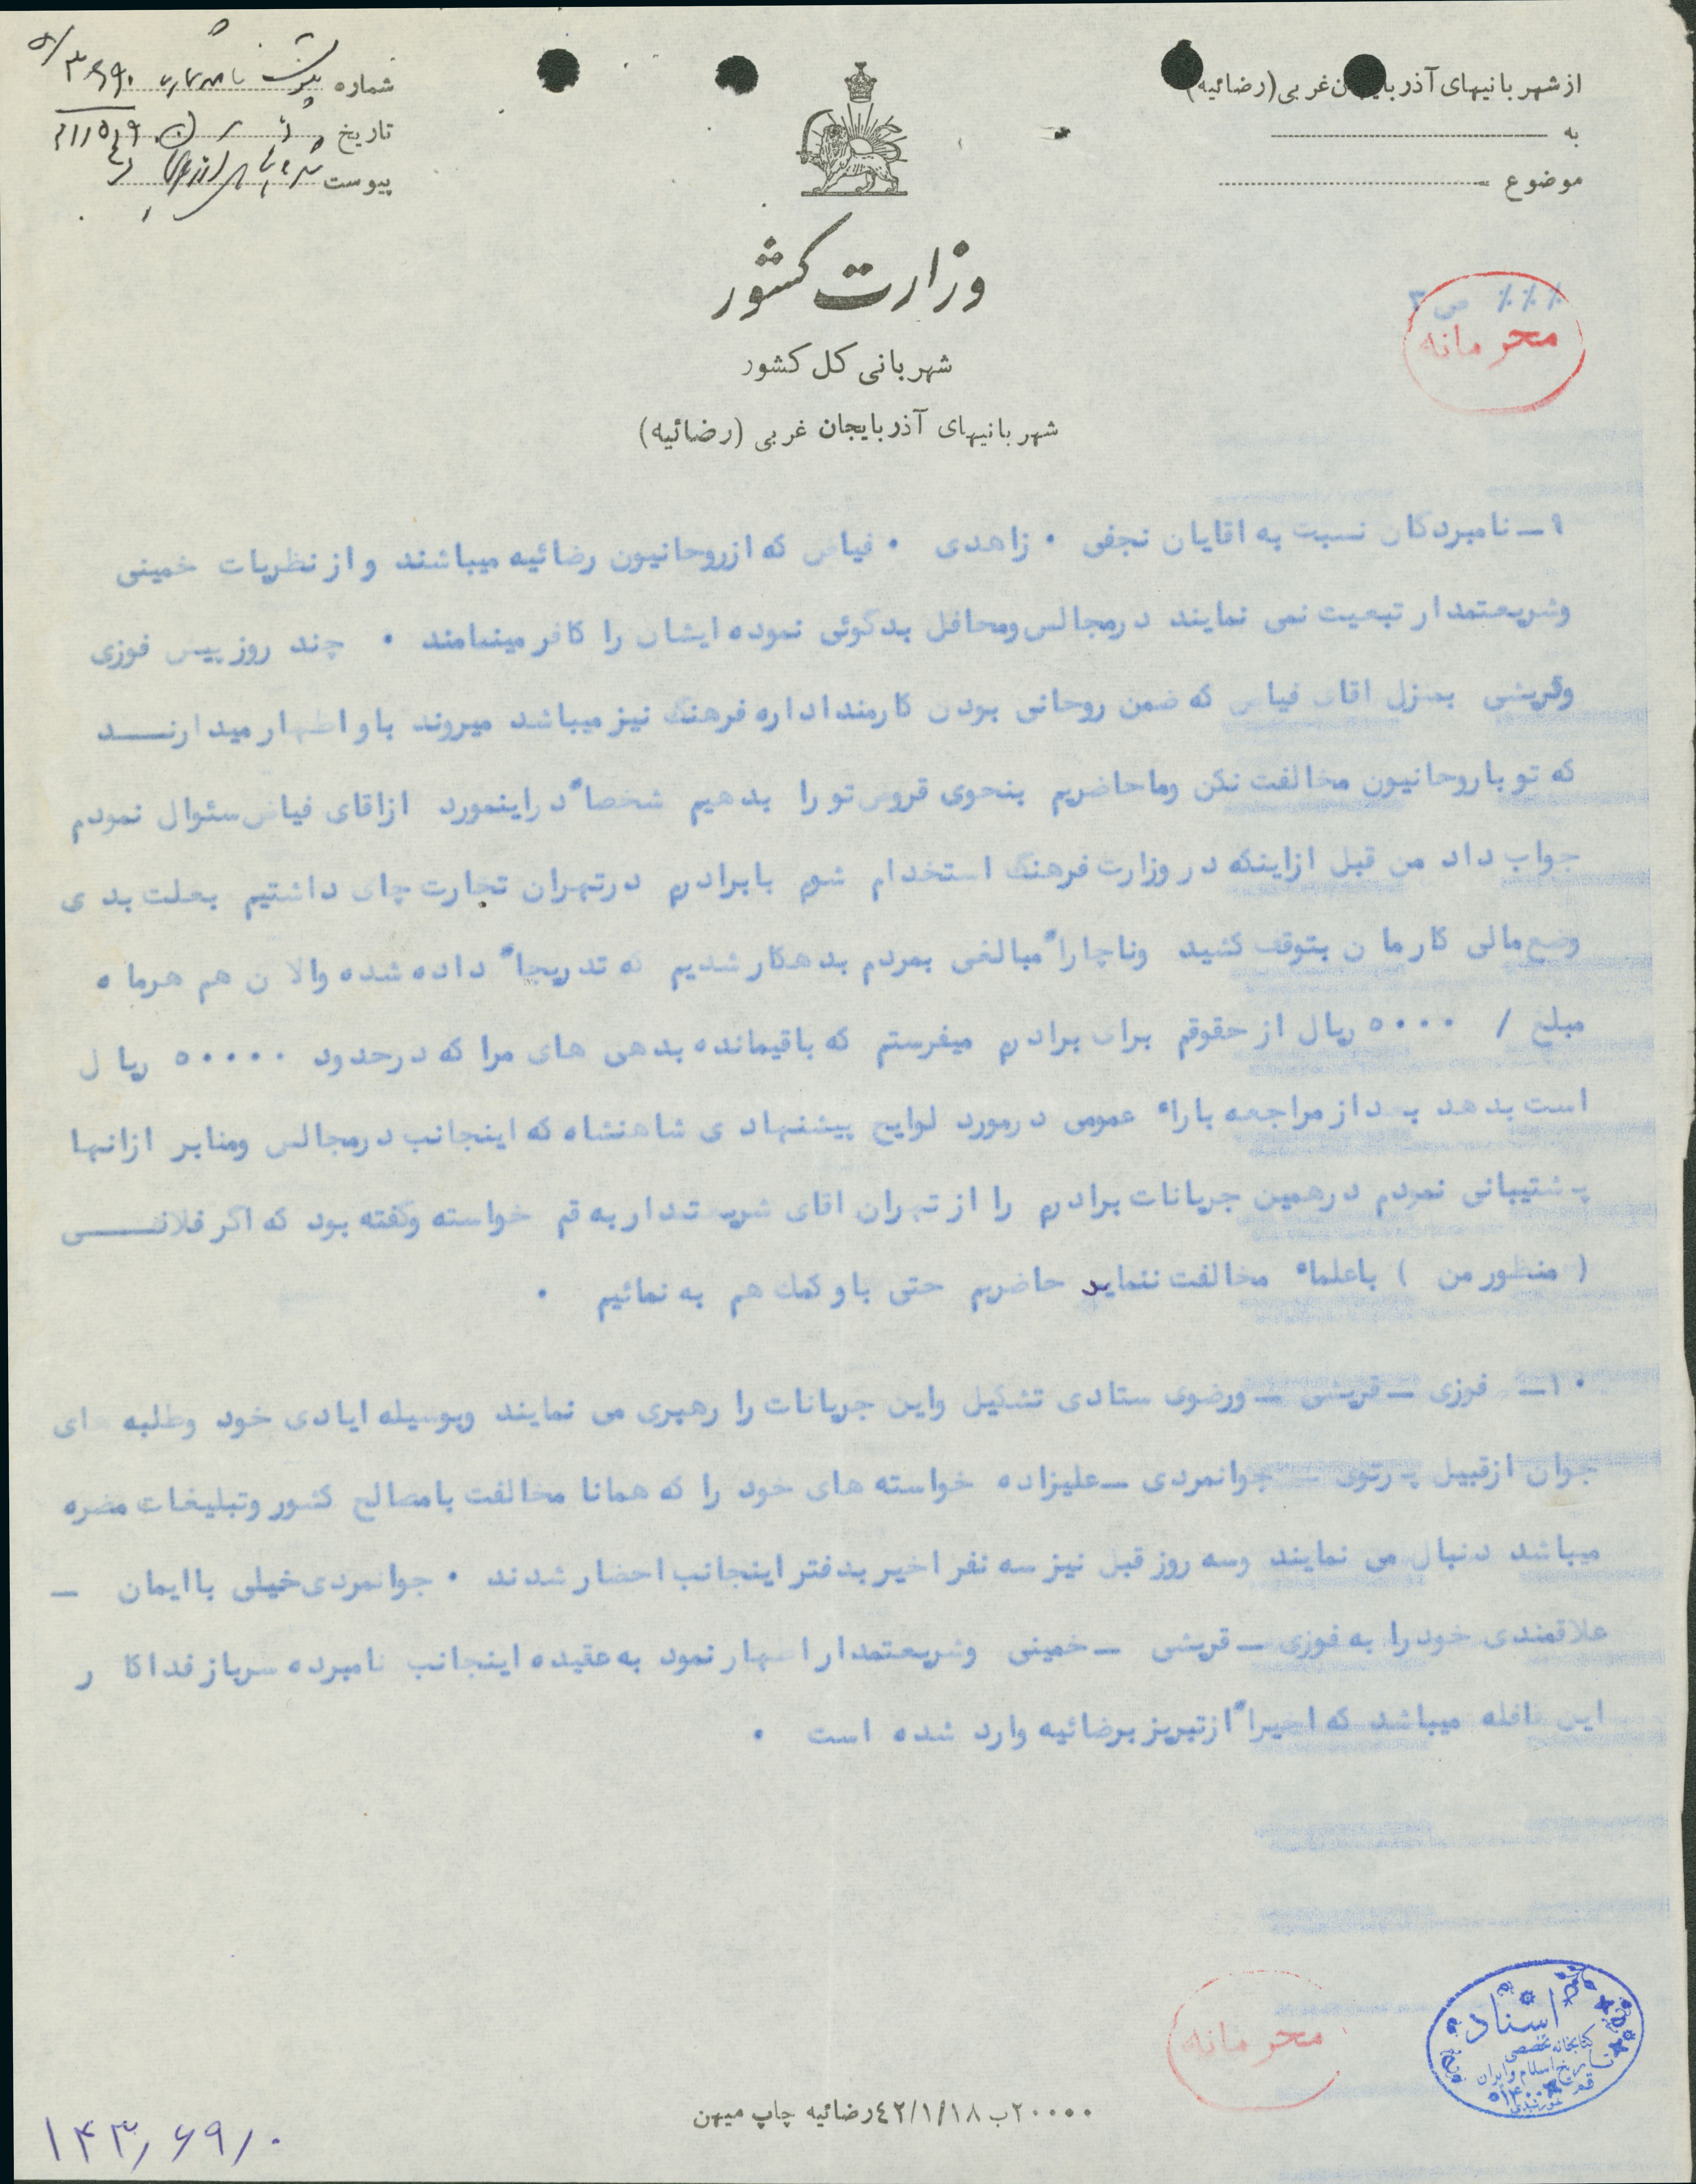 از شهربانیهای آذربایجان غربی (رضائیه)
به
موضوع
شماره
تاریخ
پیوست
وزارت کشور
شهربانی کل کشور
شهربانیهای آذربایجان غربی (رضائیه)
٪ ٪ ٪ ص ۲
محرمانه
۹ــ نامبردگان نسبت به اقایان نجفی ۰ زاهدی ۰ فیاض که ازروحانیون رضائیه میباشند و از نظریات خمینی
وشریعتمدار تبعیت نمی نمایند درمجالس ومحافل بدگوئی نموده ایشان را کافر مینمامند ۰ چند روز پیش فوزی
وقریشی بمنزل اقای فیاض که ضمن روحانی بودن کارمند اداره فرهنگ نیز میباشد میروند باو اظهار میدارنــد
که تو باروحانیون مخالفت نکن وماحاضریم بنحوی قروض تو را بدهیم شخصاً دراینمورد ازاقای فیاض سئوال نمودم
جواب داد من قبل ازاینکه در وزارت فرهنگ استخدام شوم بابرادرم درتهران تجارت چای داشتیم بعلت بدی
وضع مالی کارمان بتوقف کشید وناچاراً مبالغی بمردم بدهکار شدیم که تدریجاً داده شده والان هم هرماه
مبلغ / ۵۰۰۰ ریال از حقوقم برای برادرم میفرستم که باقیمانده بدهی های مرا که درحدود ۵۰۰۰۰ ریال
است بدهد بعد از مراجعه باراء عمومی درمورد لوایح پیشنهادی شاهنشاه که اینجانب درمجالس ومنابر ازانها
پشتیبانی نمودم درهمین جریانات برادرم را از تهران اقای شریعتمدار به قم خواسته وگفته بود که اگر فلانــی
( منظور من ) باعلماء مخالفت ننماید حاضریم حتی باو کمک هم به نمائیم ۰
۱۰ــ فوزی ــ قریشی ــ ورضوی ستادی تشکیل واین جریانات را رهبری می نمایند وبوسیله ایادی خود وطلبه های
جوان ازقبیل پرتوی ــ جوانمردی ــ علیزاده خواسته های خود را که همانا مخالفت بامصالح کشور وتبلیغات مضره
میباشد دنبال می نمایند وسه روز قبل نیز سه نفر اخیر بدفتر اینجانب احضار شدند ۰ جوانمردی خیلی باایمان ــ
علاقمندی خود را به فوزی ــ قریشی ــ خمینی وشریعتمدار اظهار نمود به عقیده اینجانب نامبرده سرباز فداکار
این قافله میباشد که اخیراً ازتبریز برضائیه وارد شده است ۰
محرمانه
اسناد
کتابخانه تخصصی
تاریخ اسلام و ایران
قم
۲۰۰۰۰ب ۴۲/۱/۱۸ رضائیه چاپ میهن
۱۴۳٫۶۹٫۰